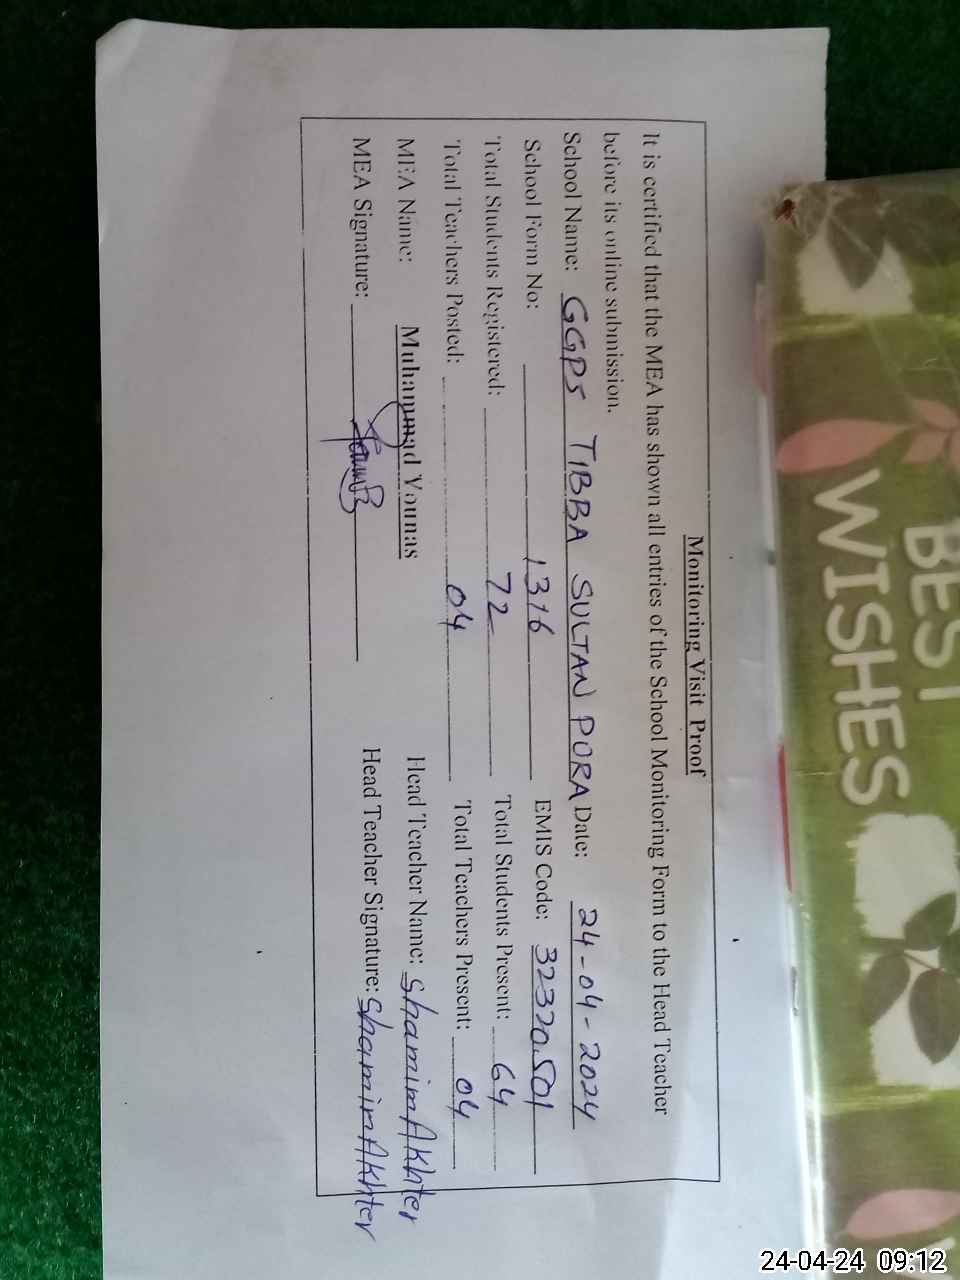 Monitoring Visit Proof
It is certified that the MEA has shown all entries of the School Monitoring Form to the Head Teacher
before its online submission.
School Name: GGPS TIBBA SULTAN PORA Date: 24-04-2024
School Form No: 1316 EMIS Code: 32320501
Total Students Registered: 72 Total Students Present: 64
Total Teachers Posted: 04 Total Teachers Present: 04
MEA Name: Muhammad Younas Head Teacher Name: Shamim Akhter
MEA Signature: Head Teacher Signature: Shamim Akhter
BEST
WISHES
24-04-24 09:12